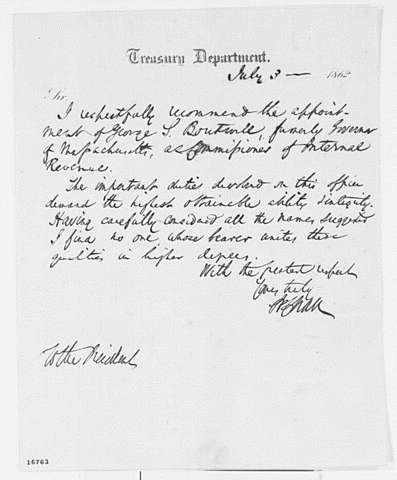 Treasury Department.
July 3 — 1862
Sir,
I respectfully recommend the appoint-
ment of George S. Boutwell, formerly Governor
of Massachusetts, as Commissioner of Internal
Revenue.
The important duties devolved on this officer
demand the highest obtainable ability & integrity.
Having carefully considered all the names suggested
I find no one, whose bearer unites these
qualities in higher degree.
With the greatest respect
Yours truly
To the President
16763